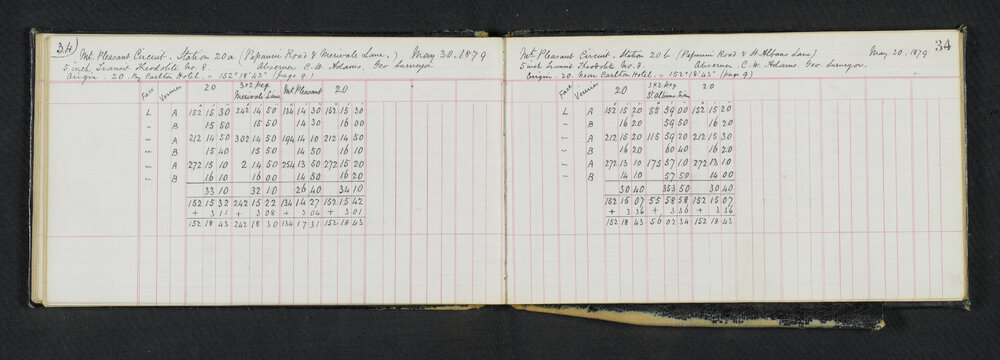 34)
Mt. Pleasant Circuit. Station 20a (Papanui Road & Merivale Lane.) May 30. 1879
5 inch Transit Theodolite No. 8. Observer C. W. Adams. Geo Surveyor.
Origin. 20. By Carlton Hotel. = 152° 18' 43" (Page 9.)
Face Vernier 20 3x2 Peg Merivale Lane Mt Pleasant 20
L A 152 15 30 242 14 50 134 14 30 152 15 30
" B 15 50 15 50 14 30 16 00
" A 212 14 50 302 14 50 194 14 10 212 14 50
" B 15 40 15 50 14 50 16 10
" A 272 15 10 2 14 50 254 13 50 272 15 20
" B 16 10 16 00 14 50 16 20
33 10 32 10 26 40 34 10
152 15 32 242 15 22 134 14 27 152 15 42
+ 3 11 + 3 08 + 3 04 + 3 01
152 18 43 242 18 30 134 17 31 152 18 43
34
Mt. Pleasant Circuit. Station 20b (Papanui Road & St. Albans Lane) May 30. 1879
5 inch Transit Theodolite No. 8. Observer C. W. Adams Geo Surveyor.
Origin. 20. Near Carlton Hotel. = 152° 18' 43" (page 9)
Face Vernier 20 3x2 Peg St Albans Lane 20
L A 152 15 20 55 59 00 152 15 20
" B 16 20 59 50 16 20
" A 212 15 20 115 59 20 212 15 30
" B 16 20 60 40 16 20
" A 272 13 10 175 57 10 272 13 10
" B 14 10 57 50 14 00
30 40 353 50 30 40
152 15 07 55 58 58 152 15 07
+ 3 36 + 3 36 + 3 36
152 18 43 56 02 34 152 18 43